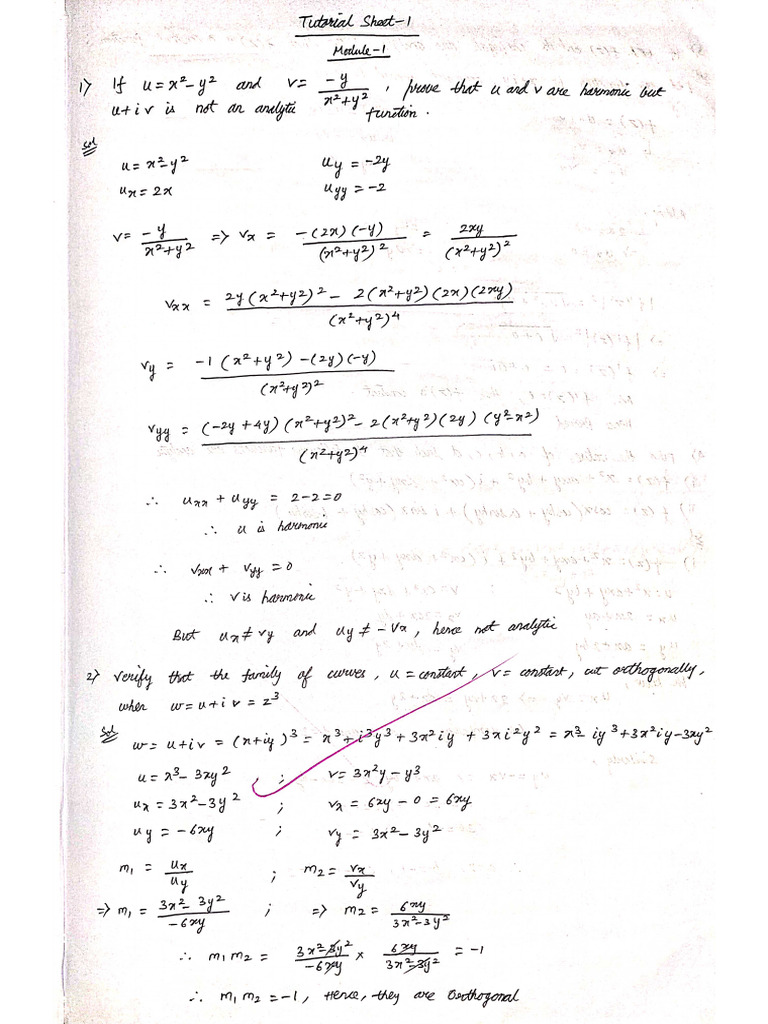 Tutorial Sheet-1
Module-1
1) If u = x² - y² and v = -y / (x² + y²) , prove that u and v are harmonic but
u + i v is not an analytic function.
Sol
u = x² - y²    u_y = -2y
u_x = 2x    u_yy = -2
v = -y / (x² + y²) => v_x = -(2x)(-y) / (x² + y²)² = 2xy / (x² + y²)²
v_xx = 2y(x² + y²)² - 2(x² + y²)(2x)(2xy) / (x² + y²)⁴
v_y = -1(x² + y²) - (2y)(-y) / (x² + y²)²
v_yy = (-2y + 4y)(x² + y²)² - 2(x² + y²)(2y)(y² - x²) / (x² + y²)⁴
∴ u_xx + u_yy = 2 - 2 = 0
∴ u is harmonic
∴ v_xx + v_yy = 0
∴ v is harmonic
But u_x ≠ v_y and u_y ≠ -v_x, hence not analytic
2) Verify that the family of curves, u = constant, v = constant, cut orthogonally,
when w = u + i v = z³
Sol
w = u + iv = (x + iy)³ = x³ + i³y³ + 3x²iy + 3xi²y² = x³ - iy³ + 3x²iy - 3xy²
u = x³ - 3xy² ; v = 3x²y - y³
u_x = 3x² - 3y² ; v_x = 6xy - 0 = 6xy
u_y = -6xy ; v_y = 3x² - 3y²
m₁ = u_x / u_y ; m₂ = v_x / v_y
=> m₁ = 3x² - 3y² / -6xy ; => m₂ = 6xy / 3x² - 3y²
∴ m₁m₂ = 3x² - 3y² / -6xy × 6xy / 3x² - 3y² = -1
∴ m₁m₂ = -1, Hence, they are Orthogonal